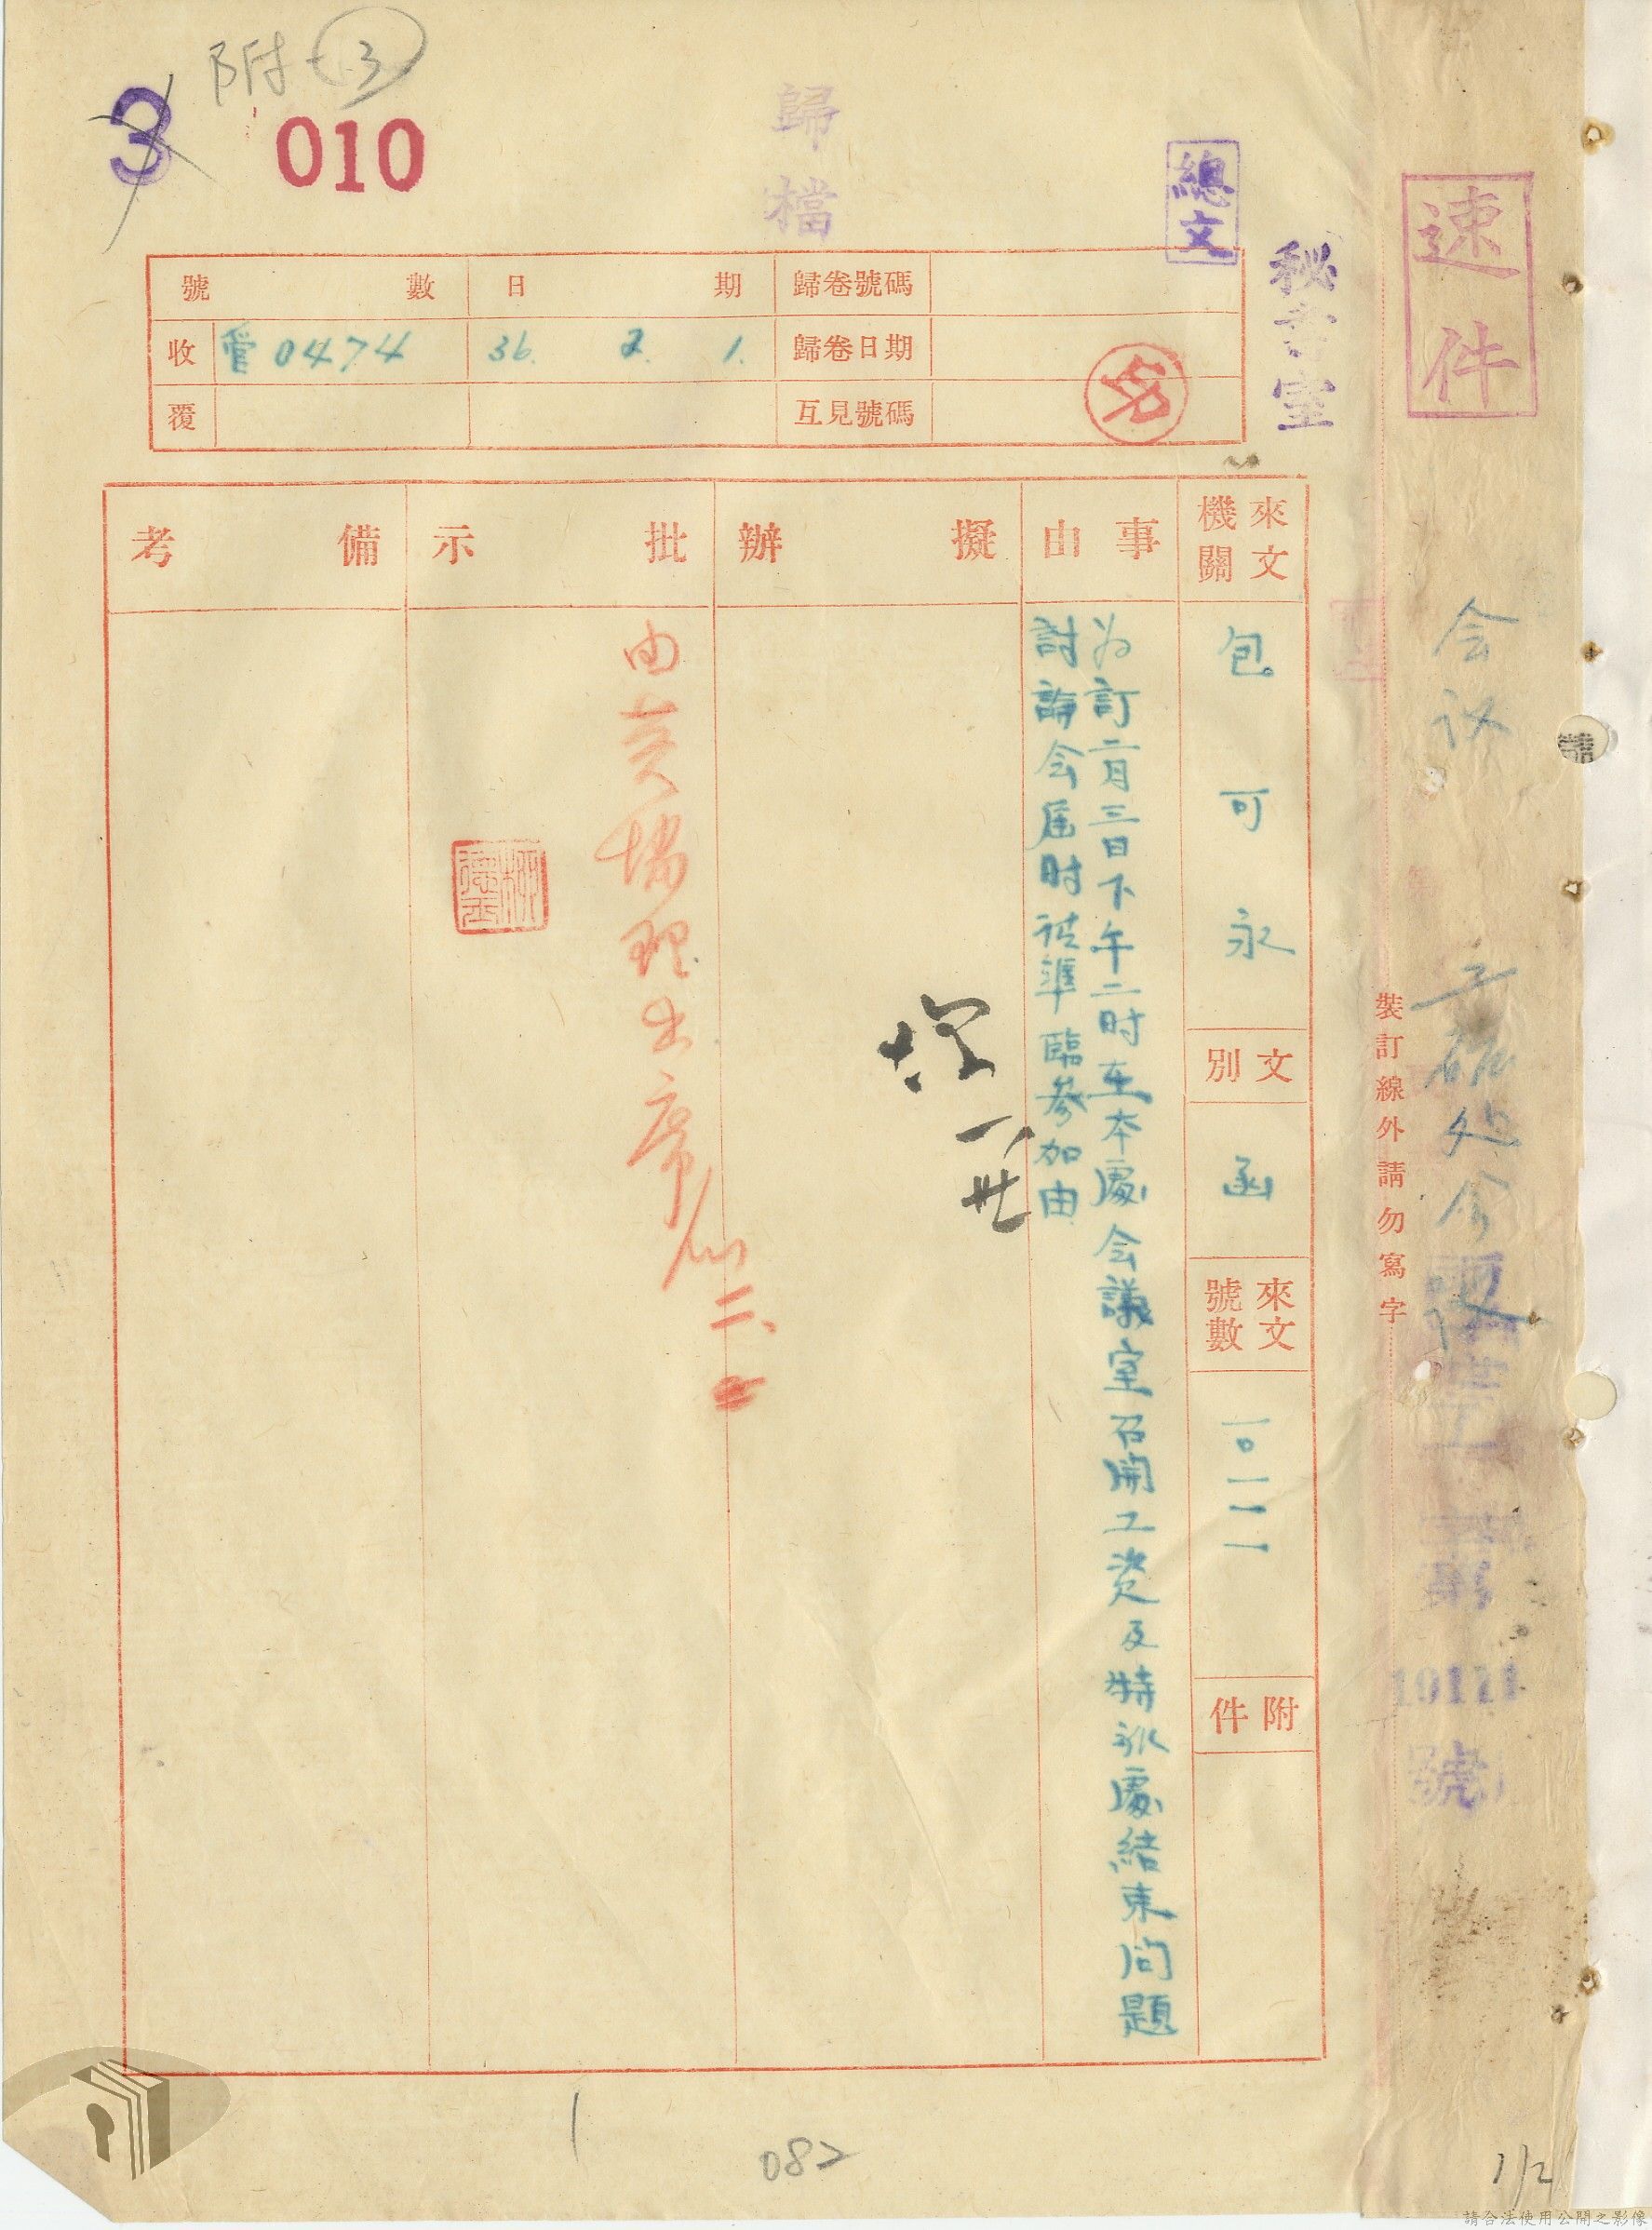 附(3)
3
010
歸檔
總文
秘書室
速件
號數 日期 歸卷號碼
收 管0474 36. 2. 1. 歸卷日期
覆 互見號碼
來文機關
包可永
文別
函
來文號數
一〇一一一
附件
事由
为訂二月三日下午二时在本處会議室召開工资及特派處結束问題
討論会届时請準臨參加由
擬辦
批示
由黃協理出席
二、二
備考
裝訂線外請勿寫字
会议
第
10111
號
082
1/2
請合法使用公開之影像